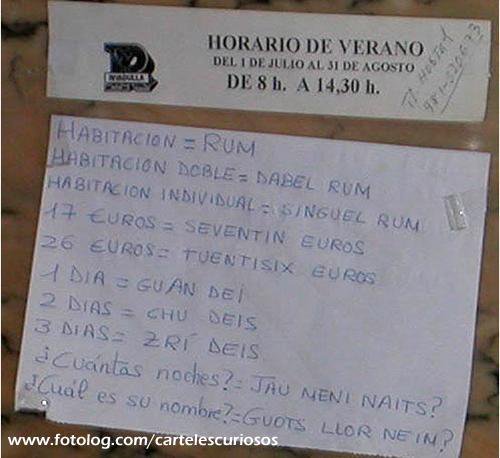 HORARIO DE VERANO
DEL 1 DE JULIO AL 31 DE AGOSTO
DE 8 h. A 14,30 h.
HABITACION = RUM
HABITACION DOBLE = DABEL RUM
HABITACION INDIVIDUAL = SINGUEL RUM
17 EUROS = SEVENTIN EUROS
26 EUROS = TUENTISIX EUROS
1 DIA = GUAN DEÍ
2 DIAS = CHU DEIS
3 DIAS = ZRÍ DEIS
¿Cuántas noches? = JAU MENI NAITS?
¿Cuál es su nombre? = GUOTS LLOR NEIM?
www.fotolog.com/cartelescuriosos